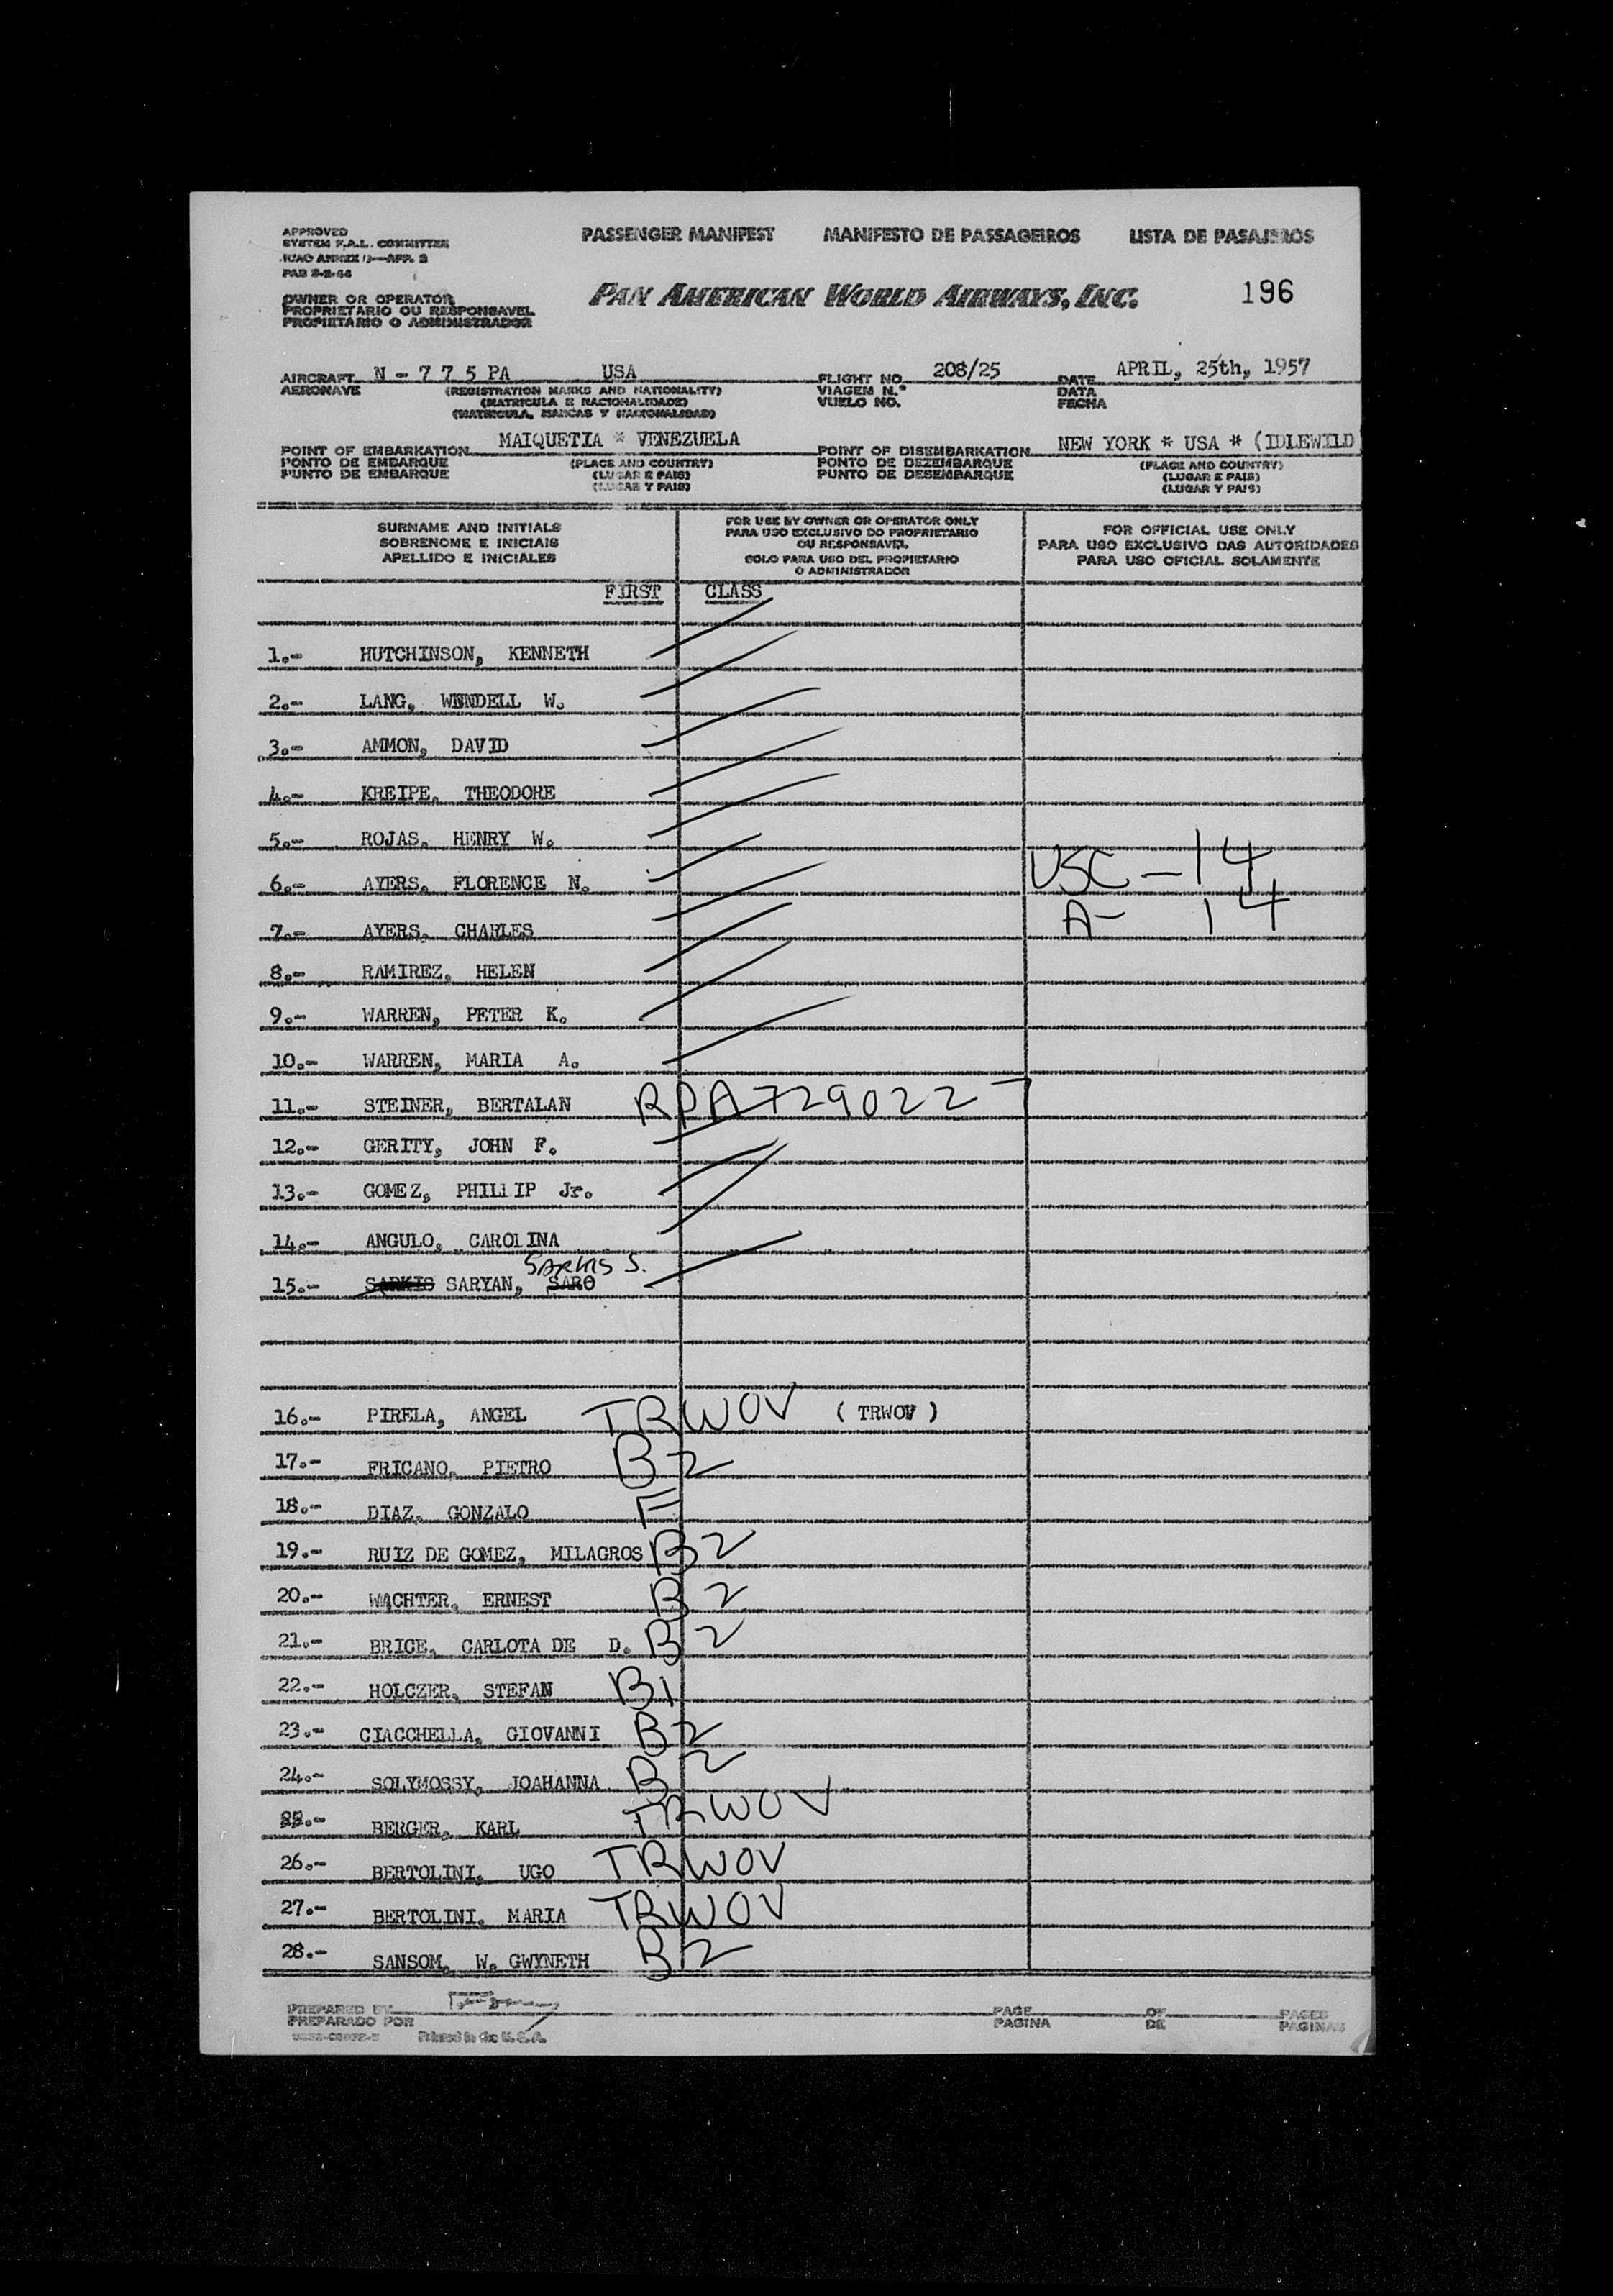 APPROVED
SYSTEM F.A.L. COMMITTEE
ICAO ANNEX 9—APP. 3
PASSENGER MANIFEST MANIFESTO DE PASSAGEIROS LISTA DE PASAJEROS
OWNER OR OPERATOR
PROPRIETARIO OU RESPONSAVEL
PROPIETARIO O ADMINISTRADOR
PAN AMERICAN WORLD AIRWAYS, INC. 196
AIRCRAFT N - 7 7 5 PA USA FLIGHT NO. 208/25 DATE APRIL, 25th, 1957
AERONAVE (REGISTRATION MARKS AND NATIONALITY) VIAGEM N.º DATA
(MATRICULA E NACIONALIDADE) VUELO NO. FECHA
(MATRICULA, MARCAS Y NACIONALIDAD)
POINT OF EMBARKATION MAIQUETIA * VENEZUELA POINT OF DISEMBARKATION NEW YORK * USA * (IDLEWILD
PONTO DE EMBARQUE (PLACE AND COUNTRY) PONTO DE DEZEMBARQUE (PLACE AND COUNTRY)
PUNTO DE EMBARQUE (LUGAR E PAIS) PUNTO DE DESEMBARQUE (LUGAR E PAIS)
(LUGAR Y PAIS) (LUGAR Y PAIS)
SURNAME AND INITIALS
SOBRENOME E INICIAIS
APELLIDO E INICIALES
FOR USE BY OWNER OR OPERATOR ONLY
PARA USO EXCLUSIVO DO PROPRIETARIO
OU RESPONSAVEL
SOLO PARA USO DEL PROPIETARIO
O ADMINISTRADOR
FOR OFFICIAL USE ONLY
PARA USO EXCLUSIVO DAS AUTORIDADES
PARA USO OFICIAL SOLAMENTE
FIRST CLASS
1.- HUTCHINSON, KENNETH
2.- LANG, WENDELL W.
3.- AMMON, DAVID
4.- KREIPE, THEODORE
5.- ROJAS, HENRY W.
6.- AYERS, FLORENCE N. USC - 14
7.- AYERS, CHARLES A - 14
8.- RAMIREZ, HELEN
9.- WARREN, PETER K.
10.- WARREN, MARIA A.
11.- STEINER, BERTALAN RPA7290227
12.- GERITY, JOHN F.
13.- GOMEZ, PHILLIP Jr.
14.- ANGULO, CAROLINA
SARKIS S.
15.- SARKIS SARYAN, SARO
16.- PIRELA, ANGEL TRWOV ( TRWOV )
17.- FRICANO, PIETRO B2
18.- DIAZ, GONZALO F
19.- RUIZ DE GOMEZ, MILAGROS B2
20.- WACHTER, ERNEST B2
21.- BRICE, CARLOTA DE D. B2
22.- HOLCZER, STEFAN B1
23.- CIACCHELLA, GIOVANNI B2
24.- SOLYMOSSY, JOAHANNA B2
25.- BERGER, KARL TRWOV
26.- BERTOLINI, UGO TRWOV
27.- BERTOLINI, MARIA TRWOV
28.- SANSOM, W. GWYNETH B2
PREPARED BY PAGE OF PAGES
PREPARADO POR PAGINA DE PAGINAS
Printed in the U.S.A.